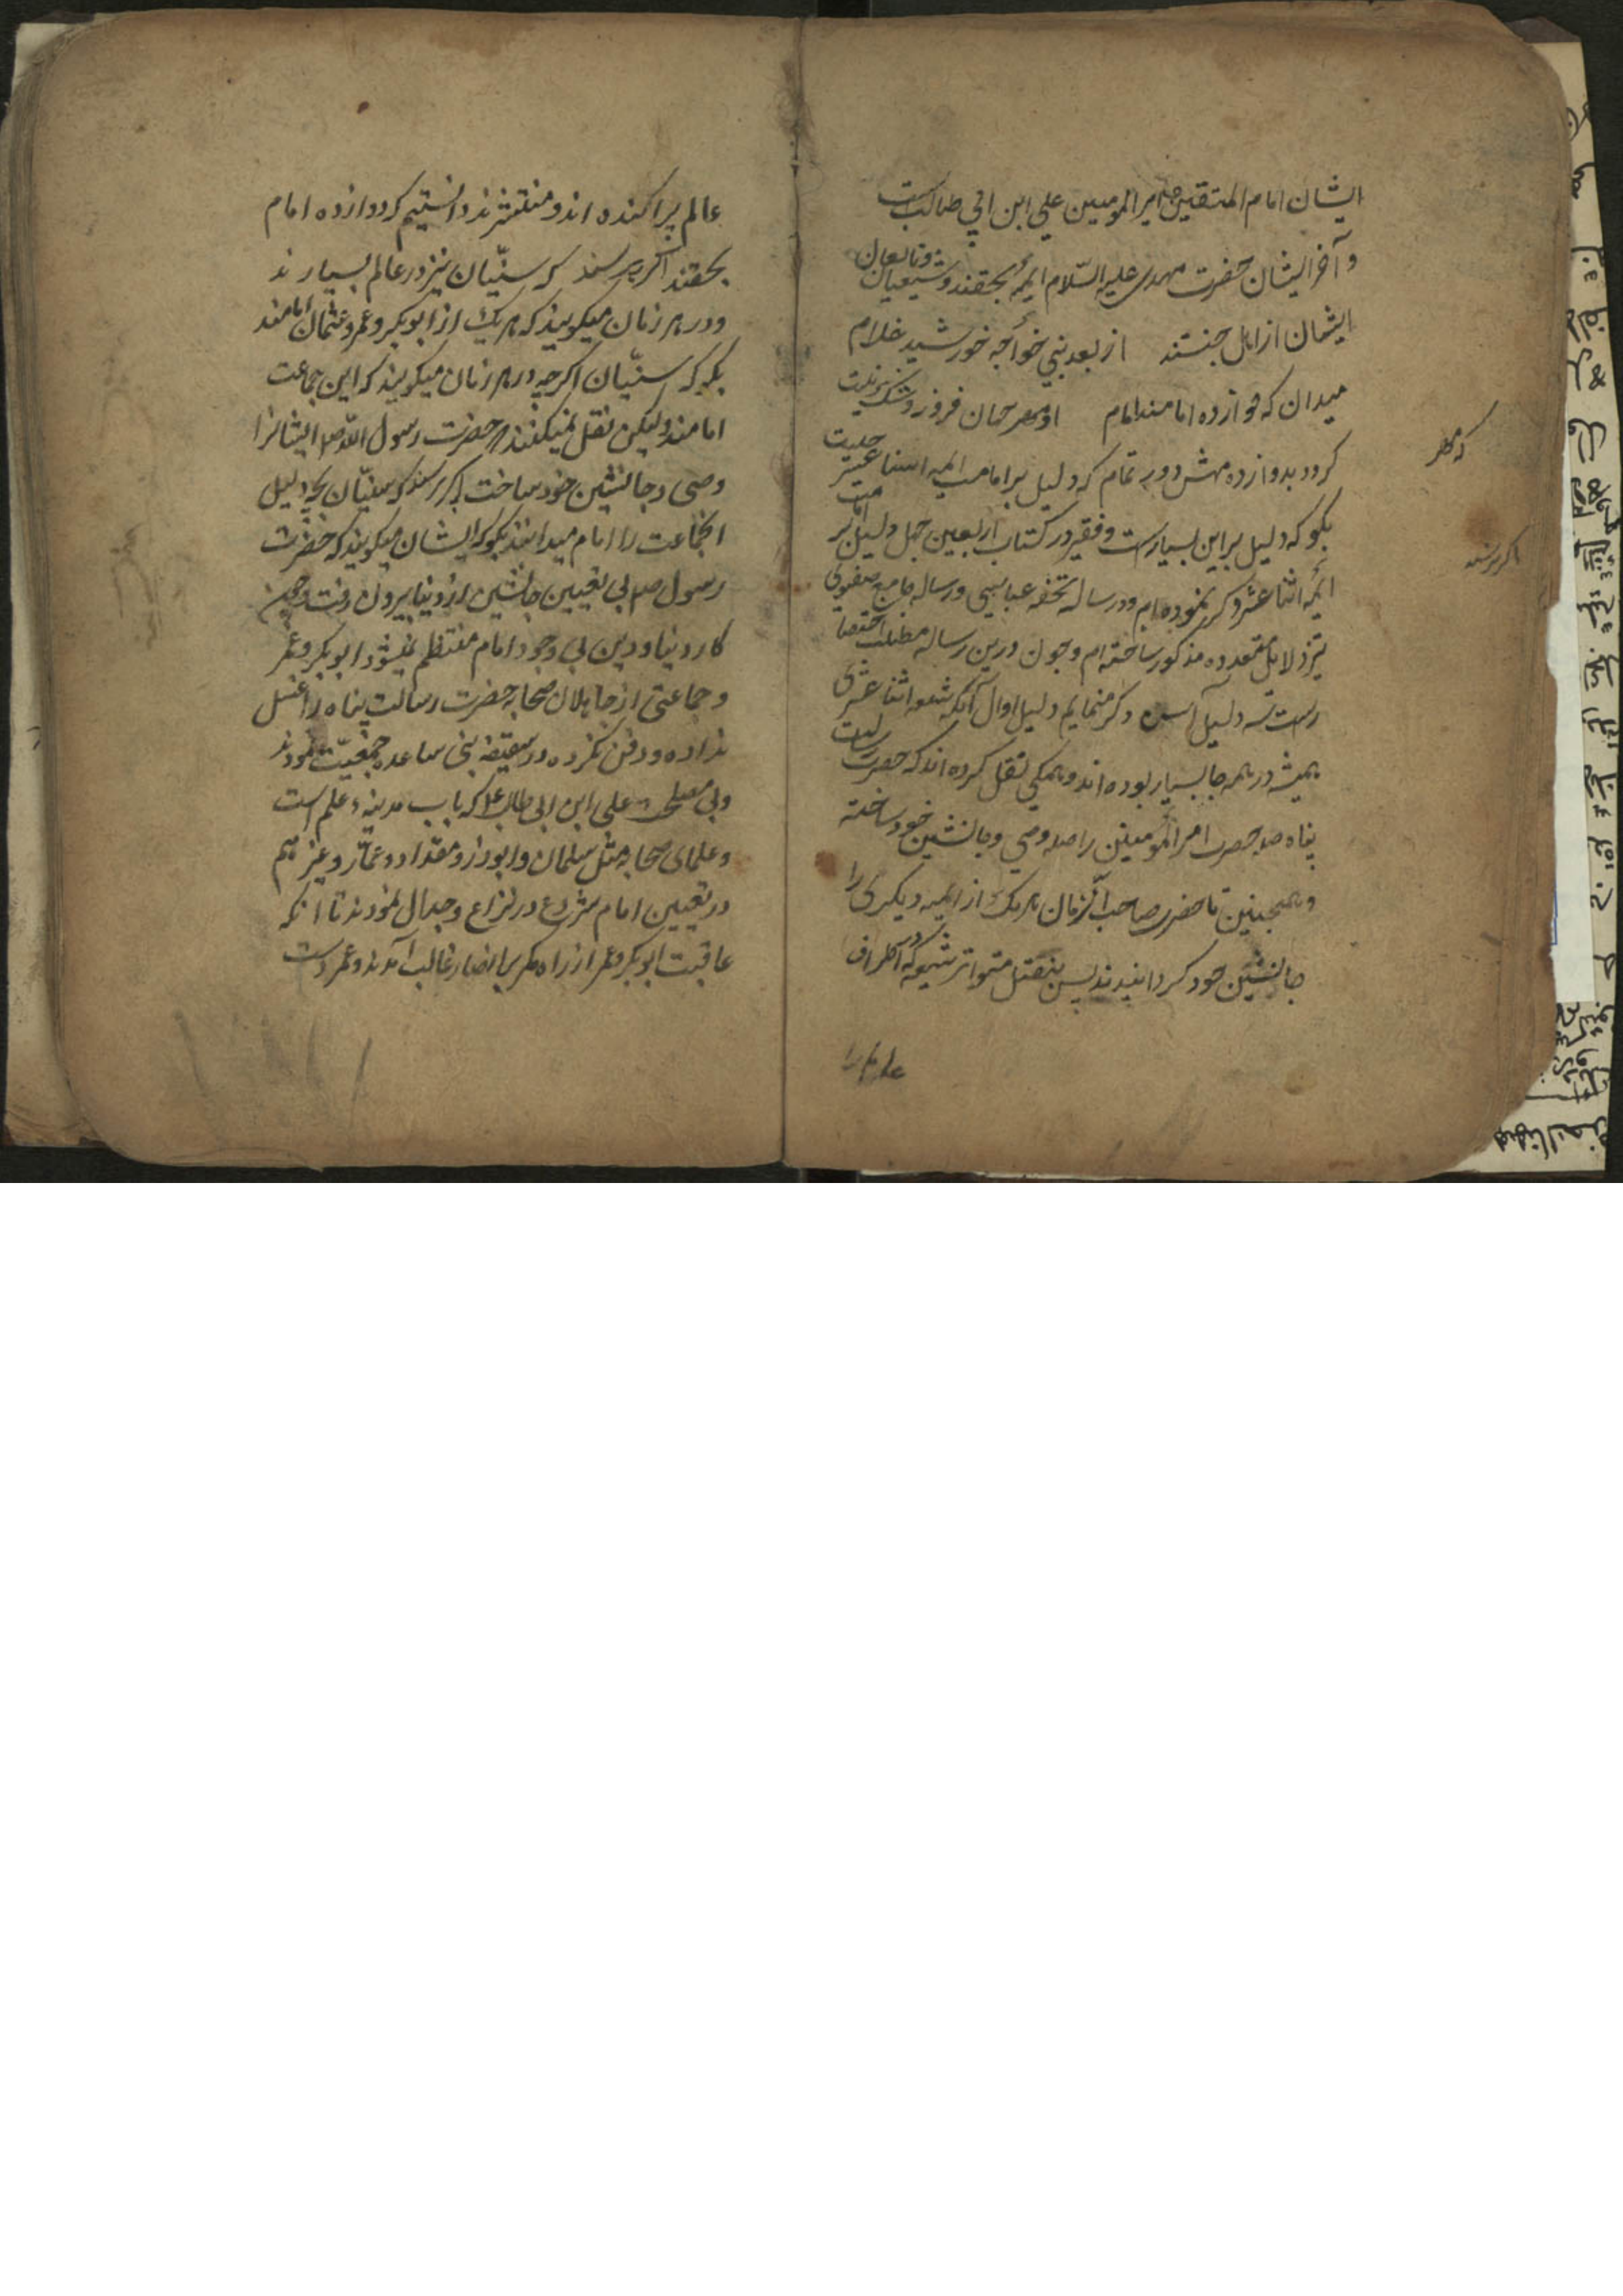 ایشان امام المتقین امیر المومنین علی ابن ابی طالبست
و آخر ایشان حضرت مهدی علیه السلام ایمه بحقند و شیعیان و تابعان
ایشان از اهل جنتند از بعد نبی خواجه خورشید غلام
میدان که دوازده امامند امام
کردد بدوازده دور تمام که دلیل بر امامت ایمه اثنا عشر چیست
بکو که دلیل بر این بسیارست و فقیر در کتاب اربعین چهل دلیل بر امامت
ائمه اثنا عشر ذکر نموده ام و در رساله تحفه عباسی و رساله جامع صفوی
نیز دلایل متعدده مذکور ساخته ام و چون درین رساله مطلب اختصار
است سه دلیل ذکر مینمایم دلیل اول آنکه شیعه اثنا عشری
همیشه در همه جا بسیار بوده اند و همکی نقل کرده اند که حضرت رسالت
پناه صلعم حضرت امیر المومنین را وصی و جانشین خود ساخته
و همچنین تا حضرت صاحب الزمان هر یک از ایمه دیکری را
جانشین خود کردانیدند پس بنقل متواتر شیعه که در اطراف
عالم پراکنده اند و منتشرند دانستیم که دوازده امام
بحقند اکر پرسند که سنیان نیز در عالم بسیارند
و در هر زمان میکویند که هر یک از ابو بکر و عمر و عثمان امامند
بکو که سنیان اکرچه در هر زمان میکویند که این جماعت
امامند ولیکن نقل نمیکنند که حضرت رسول الله صلعم ایشانرا
وصی و جانشین خود ساخت اکر پرسند که سنیان بچه دلیل
انجماعت را امام میدانند بکو که ایشان میکویند که حضرت
رسول صلعم بی تعیین جانشین از دنیا بیرون رفت و چون
کار دنیا و دین بی وجود امام منتظم نمیشود ابو بکر و عمر
و جماعتی از جاهلان صحابه حضرت رسالت پناه را غسل
نداده و دفن نکرده در سقیفه بنی ساعده جمعیت نمودند
و بی مصلحت علی ابن ابی طالب که باب مدینه علم است
و علمای صحابه مثل سلمان و ابوذر و مقداد و عمار و غیرهم
در تعیین امام شروع در نزاع و جدال نمودند تا انکه
عاقبت ابو بکر و عمر از راه مکر بر انصار غالب آمدند و عمر دست
اکر پرسند